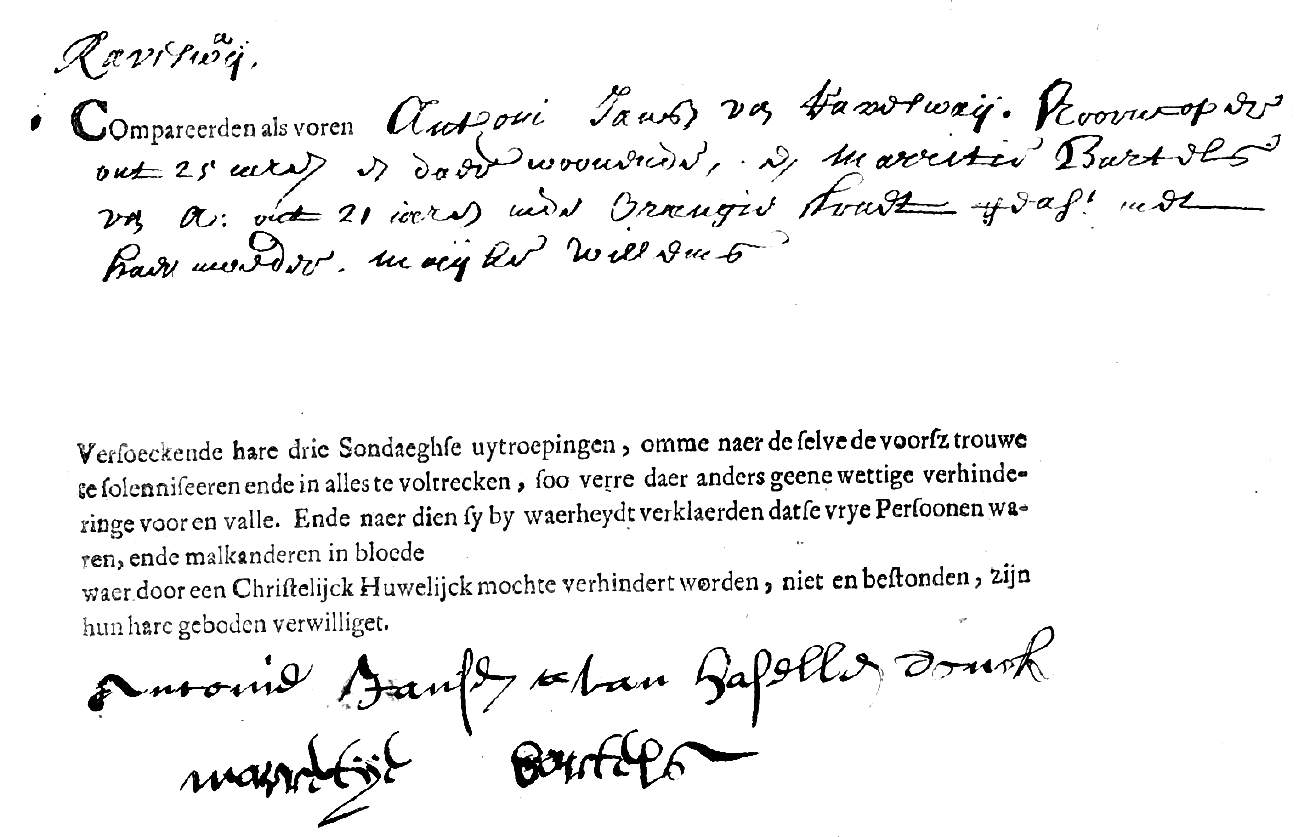 COmpareerden als voren Antoni Jansz van Harderwij. Kooruscoper
out 25 iaren en daer woonende, en Marritie Bartels
van A: out 21 iaren inde Orangie straet geass: met
haer moeder. Marijtie Willems
Versoeckende hare drie Sondaeghse uytroepingen, omme naer de selve de voorsz trouwe
te solenniseeren ende in alles te voltrecken, soo verre daer anders geene wettige verhinde-
ringe voor en valle. Ende naer dien sy by waerheydt verklaerden datse vrye Persoonen wa-
ren, ende malkanderen in bloede
waer door een Christelijck Huwelijck mochte verhindert worden, niet en bestonden, zijn
hun hare geboden verwilliget.
Antonie Jansen van Hasselt
marretije bartels